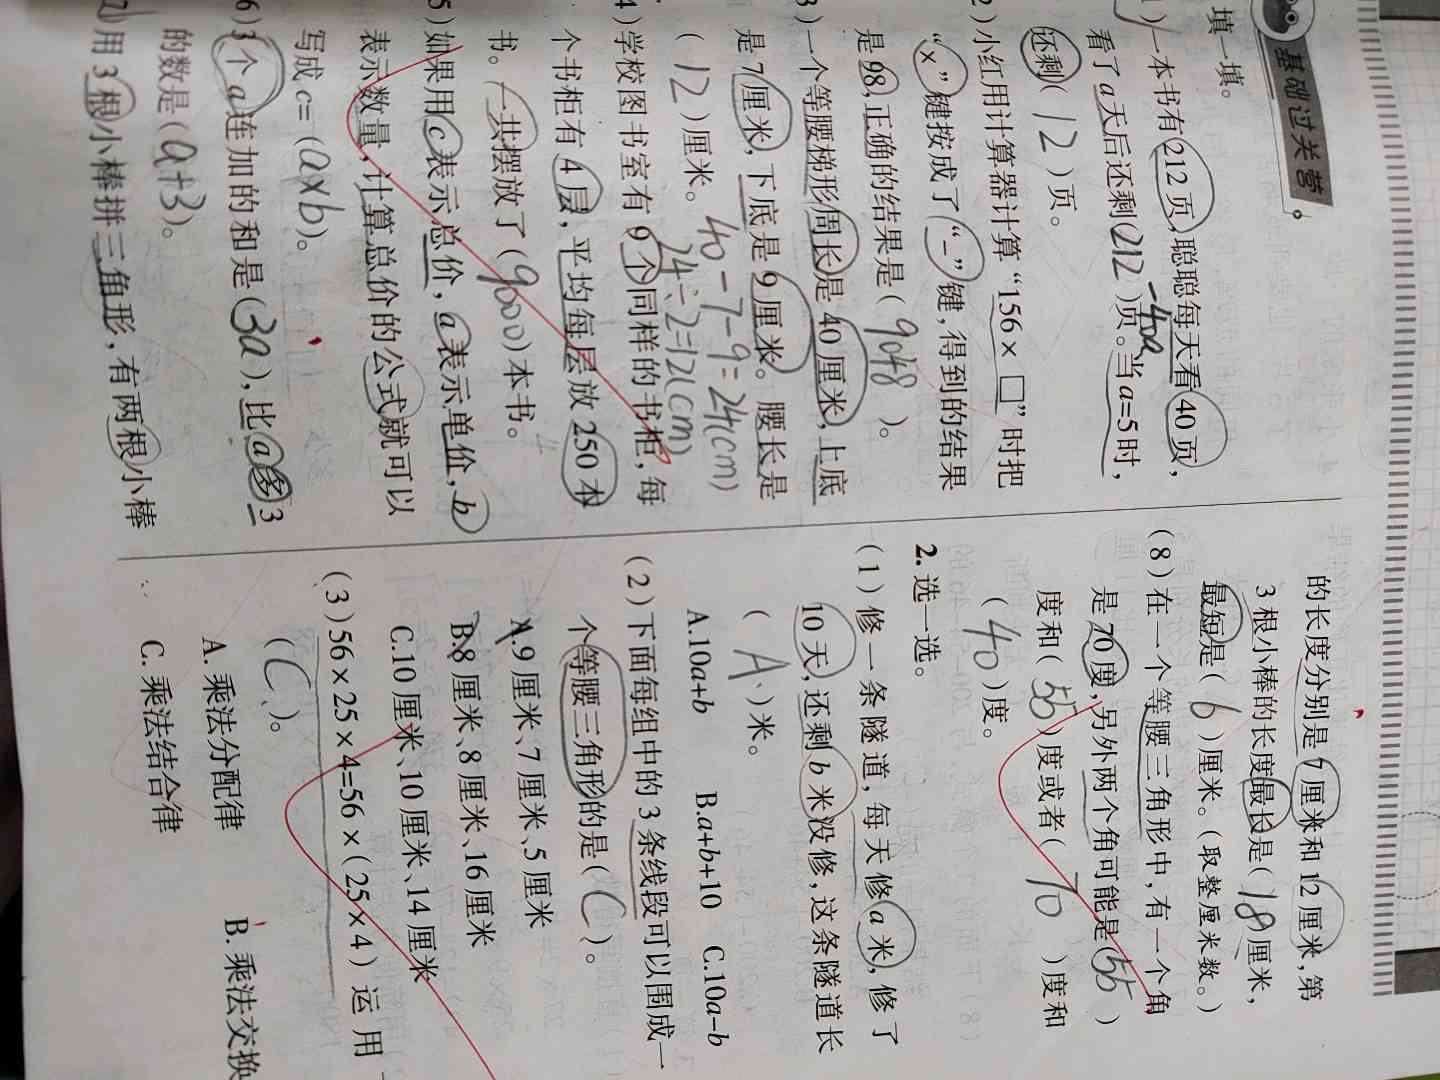 基础过关营
填一填。
1)一本书有212页,聪聪每天看40页,
看了a天后还剩(212-40a)页。当a=5时,
还剩(12)页。
2)小红用计算器计算“156×□”时把
“×”键按成了“-”键,得到的结果
是98,正确的结果是(9048)。
3)一个等腰梯形周长是40厘米,上底
是7厘米,下底是9厘米。腰长是
(12)厘米。
40-7-9=24(cm)
24÷2=12(cm)
4)学校图书室有9个同样的书柜,每
个书柜有4层,平均每层放250本
书。一共摆放了(9000)本书。
5)如果用c表示总价,a表示单价,b
表示数量,计算总价的公式就可以
写成c=(a×b)。
6)3个a连加的和是(3a),比a多3
的数是(a+3)。
7)用3根小棒拼三角形,有两根小棒
的长度分别是7厘米和12厘米,第
3根小棒的长度最长是(18)厘米,
最短是(6)厘米。(取整厘米数。)
(8)在一个等腰三角形中,有一个角
是70度,另外两个角可能是(55)
度和(55)度或者(70)度和
(40)度。
2.选一选。
(1)修一条隧道,每天修a米,修了
10天,还剩b米没修,这条隧道长
(A)米。
A.10a+b B.a+b+10 C.10a-b
(2)下面每组中的3条线段可以围成一
个等腰三角形的是(C)。
A.9厘米、7厘米、5厘米
B.8厘米、8厘米、16厘米
C.10厘米、10厘米、14厘米
(3)56×25×4=56×(25×4)运用
(C)。
A.乘法分配律 B.乘法交换
C.乘法结合律